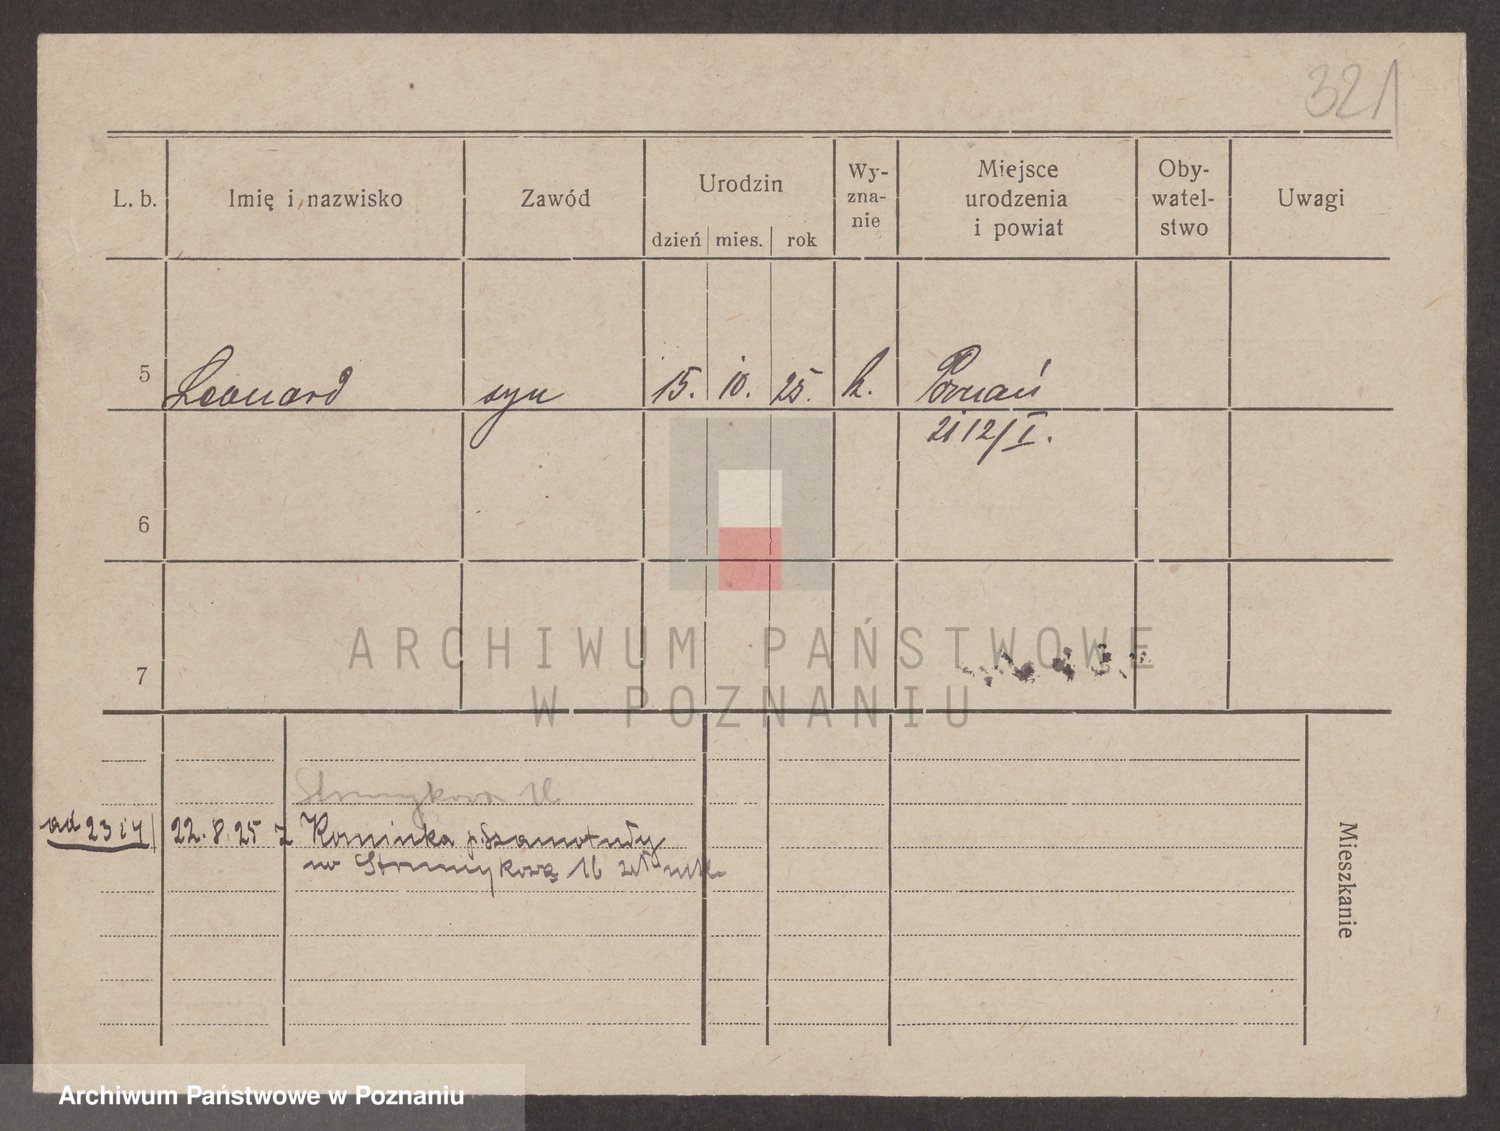 321
L. b. Imię i nazwisko Zawód Urodzin Wy-zna-nie Miejsce urodzenia i powiat Oby-watel-stwo Uwagi
dzień mies. rok
5 Leonard syn 15. 10. 25. k. Poznań
2112/I.
6
7
ARCHIWUM PAŃSTWOWE
W POZNANIU
Strumykowa 16.
ad 2314 22.8.25 z Kominka p. Szamotuły
Strumykowa 16
Mieszkanie
Archiwum Państwowe w Poznaniu